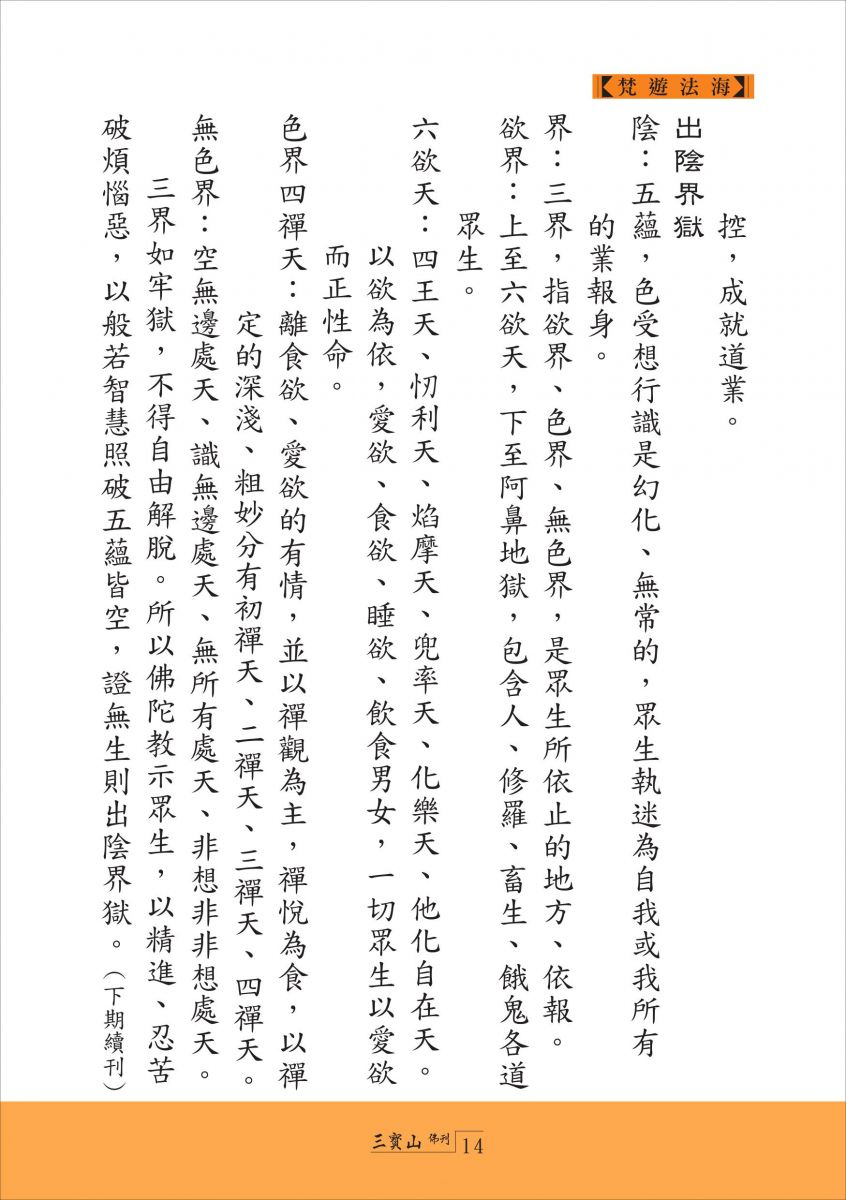 梵遊法海
控，成就道業。
出陰界獄
陰：五蘊，色受想行識是幻化、無常的，眾生執迷為自我或我所有
的業報身。
界：三界，指欲界、色界、無色界，是眾生所依止的地方、依報。
欲界：上至六欲天，下至阿鼻地獄，包含人、修羅、畜生、餓鬼各道
眾生。
六欲天：四王天、忉利天、焰摩天、兜率天、化樂天、他化自在天。
以欲為依，愛欲、食欲、睡欲、飲食男女，一切眾生以愛欲
而正性命。
色界四禪天：離食欲、愛欲的有情，並以禪觀為主，禪悅為食，以禪
定的深淺、粗妙分有初禪天、二禪天、三禪天、四禪天。
無色界：空無邊處天、識無邊處天、無所有處天、非想非非想處天。
三界如牢獄，不得自由解脫。所以佛陀教示眾生，以精進、忍苦
破煩惱惡，以般若智慧照破五蘊皆空，證無生則出陰界獄。（下期續刊）
三寶山 佛刊 14